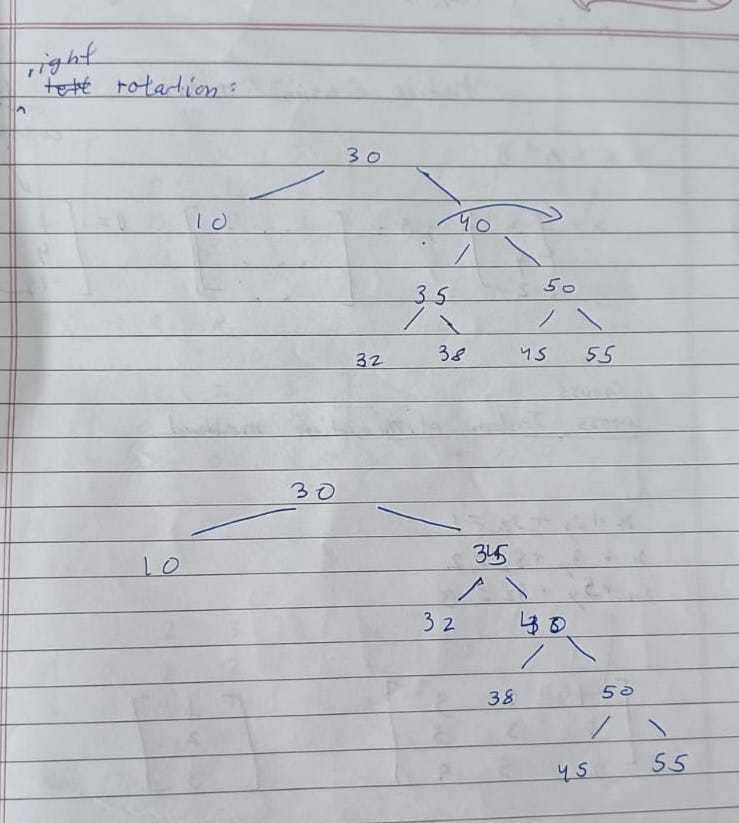 right
rotation:
30
10 40
35 50
32 38 45 55
30
10 35
32 40
38 50
45 55